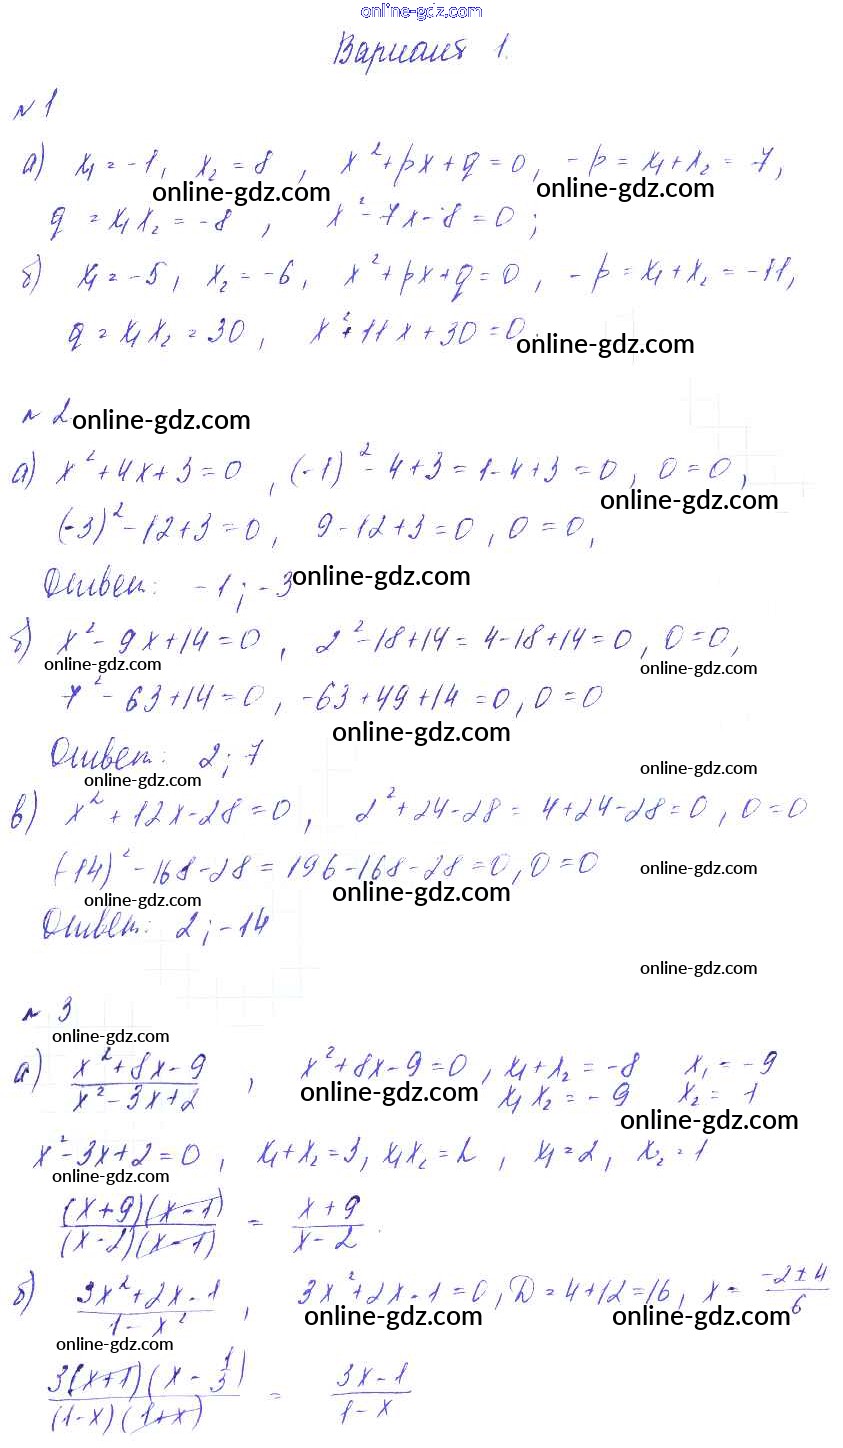 online-gdz.com
Вариант 1.
№1
а) x₁ = -1, x₂ = 8, x² + px + q = 0, -p = x₁ + x₂ = 7,
online-gdz.com online-gdz.com
q = x₁x₂ = -8, x² - 7x - 8 = 0;
б) x₁ = -5, x₂ = -6, x² + px + q = 0, -p = x₁ + x₂ = -11,
q = x₁x₂ = 30, x² + 11x + 30 = 0.
online-gdz.com
№2
online-gdz.com
а) x² + 4x + 3 = 0, (-1)² - 4 + 3 = 1 - 4 + 3 = 0, 0 = 0,
online-gdz.com
(-3)² - 12 + 3 = 0, 9 - 12 + 3 = 0, 0 = 0,
Ответ: -1; -3
online-gdz.com
б) x² - 9x + 14 = 0, 2² - 18 + 14 = 4 - 18 + 14 = 0, 0 = 0,
online-gdz.com online-gdz.com
7² - 63 + 14 = 0, -63 + 49 + 14 = 0, 0 = 0
online-gdz.com
Ответ: 2; 7
online-gdz.com online-gdz.com
в) x² + 12x - 28 = 0, 2² + 24 - 28 = 4 + 24 - 28 = 0, 0 = 0
(-14)² - 168 - 28 = 196 - 168 - 28 = 0, 0 = 0
online-gdz.com
online-gdz.com online-gdz.com
Ответ: 2; -14
online-gdz.com
№3
online-gdz.com
а) (x² + 8x - 9)/(x² - 3x + 2), x² + 8x - 9 = 0, x₁ + x₂ = -8 x₁ = -9
x₁x₂ = -9 x₂ = 1
online-gdz.com online-gdz.com
x² - 3x + 2 = 0, x₁ + x₂ = 3, x₁x₂ = 2, x₁ = 2, x₂ = 1
online-gdz.com
(x + 9)(x - 1)/(x - 2)(x - 1) = (x + 9)/(x - 2).
б) (3x² + 2x - 1)/(1 - x²), 3x² + 2x - 1 = 0, D = 4 + 12 = 16, x = (-2 ± 4)/6
online-gdz.com online-gdz.com
online-gdz.com
3(x + 1)(x - 1/3)/(1 - x)(1 + x) = (3x - 1)/(1 - x)